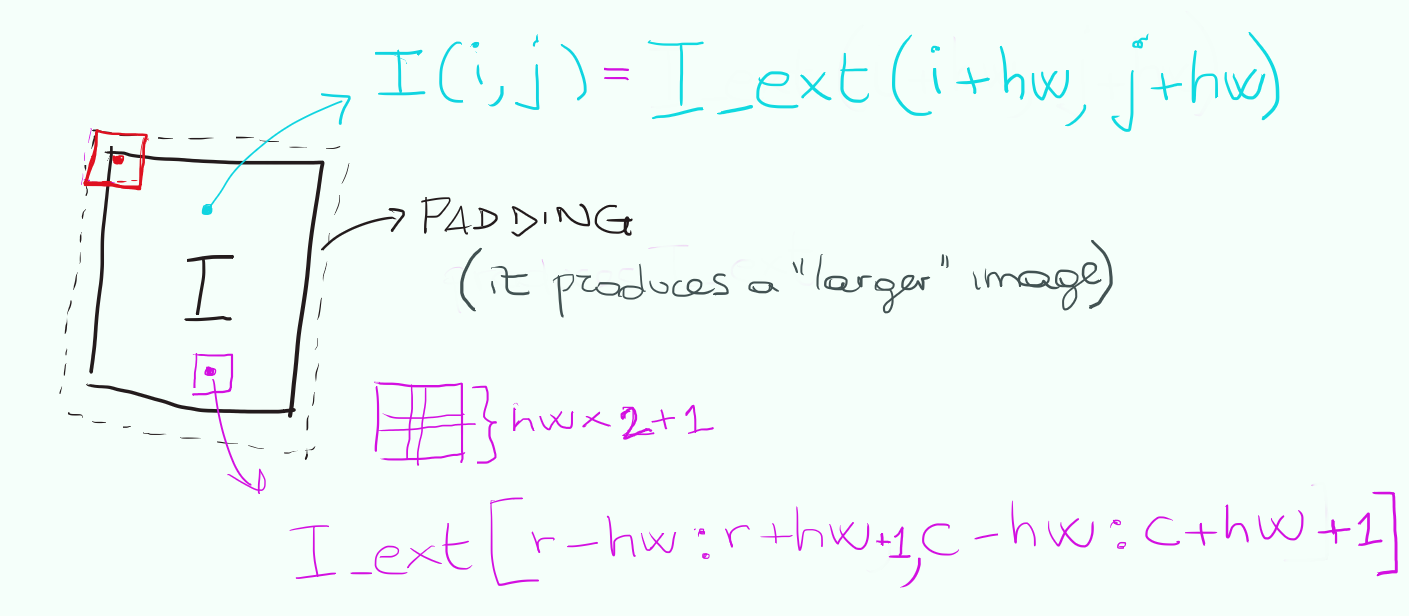 I(i,j) = I_ext(i+hw, j+hw)
PADDING
(it produces a "larger" image)
I
} hw×2+1
I_ext[r-hw:r+hw+1,c-hw:c+hw+1]